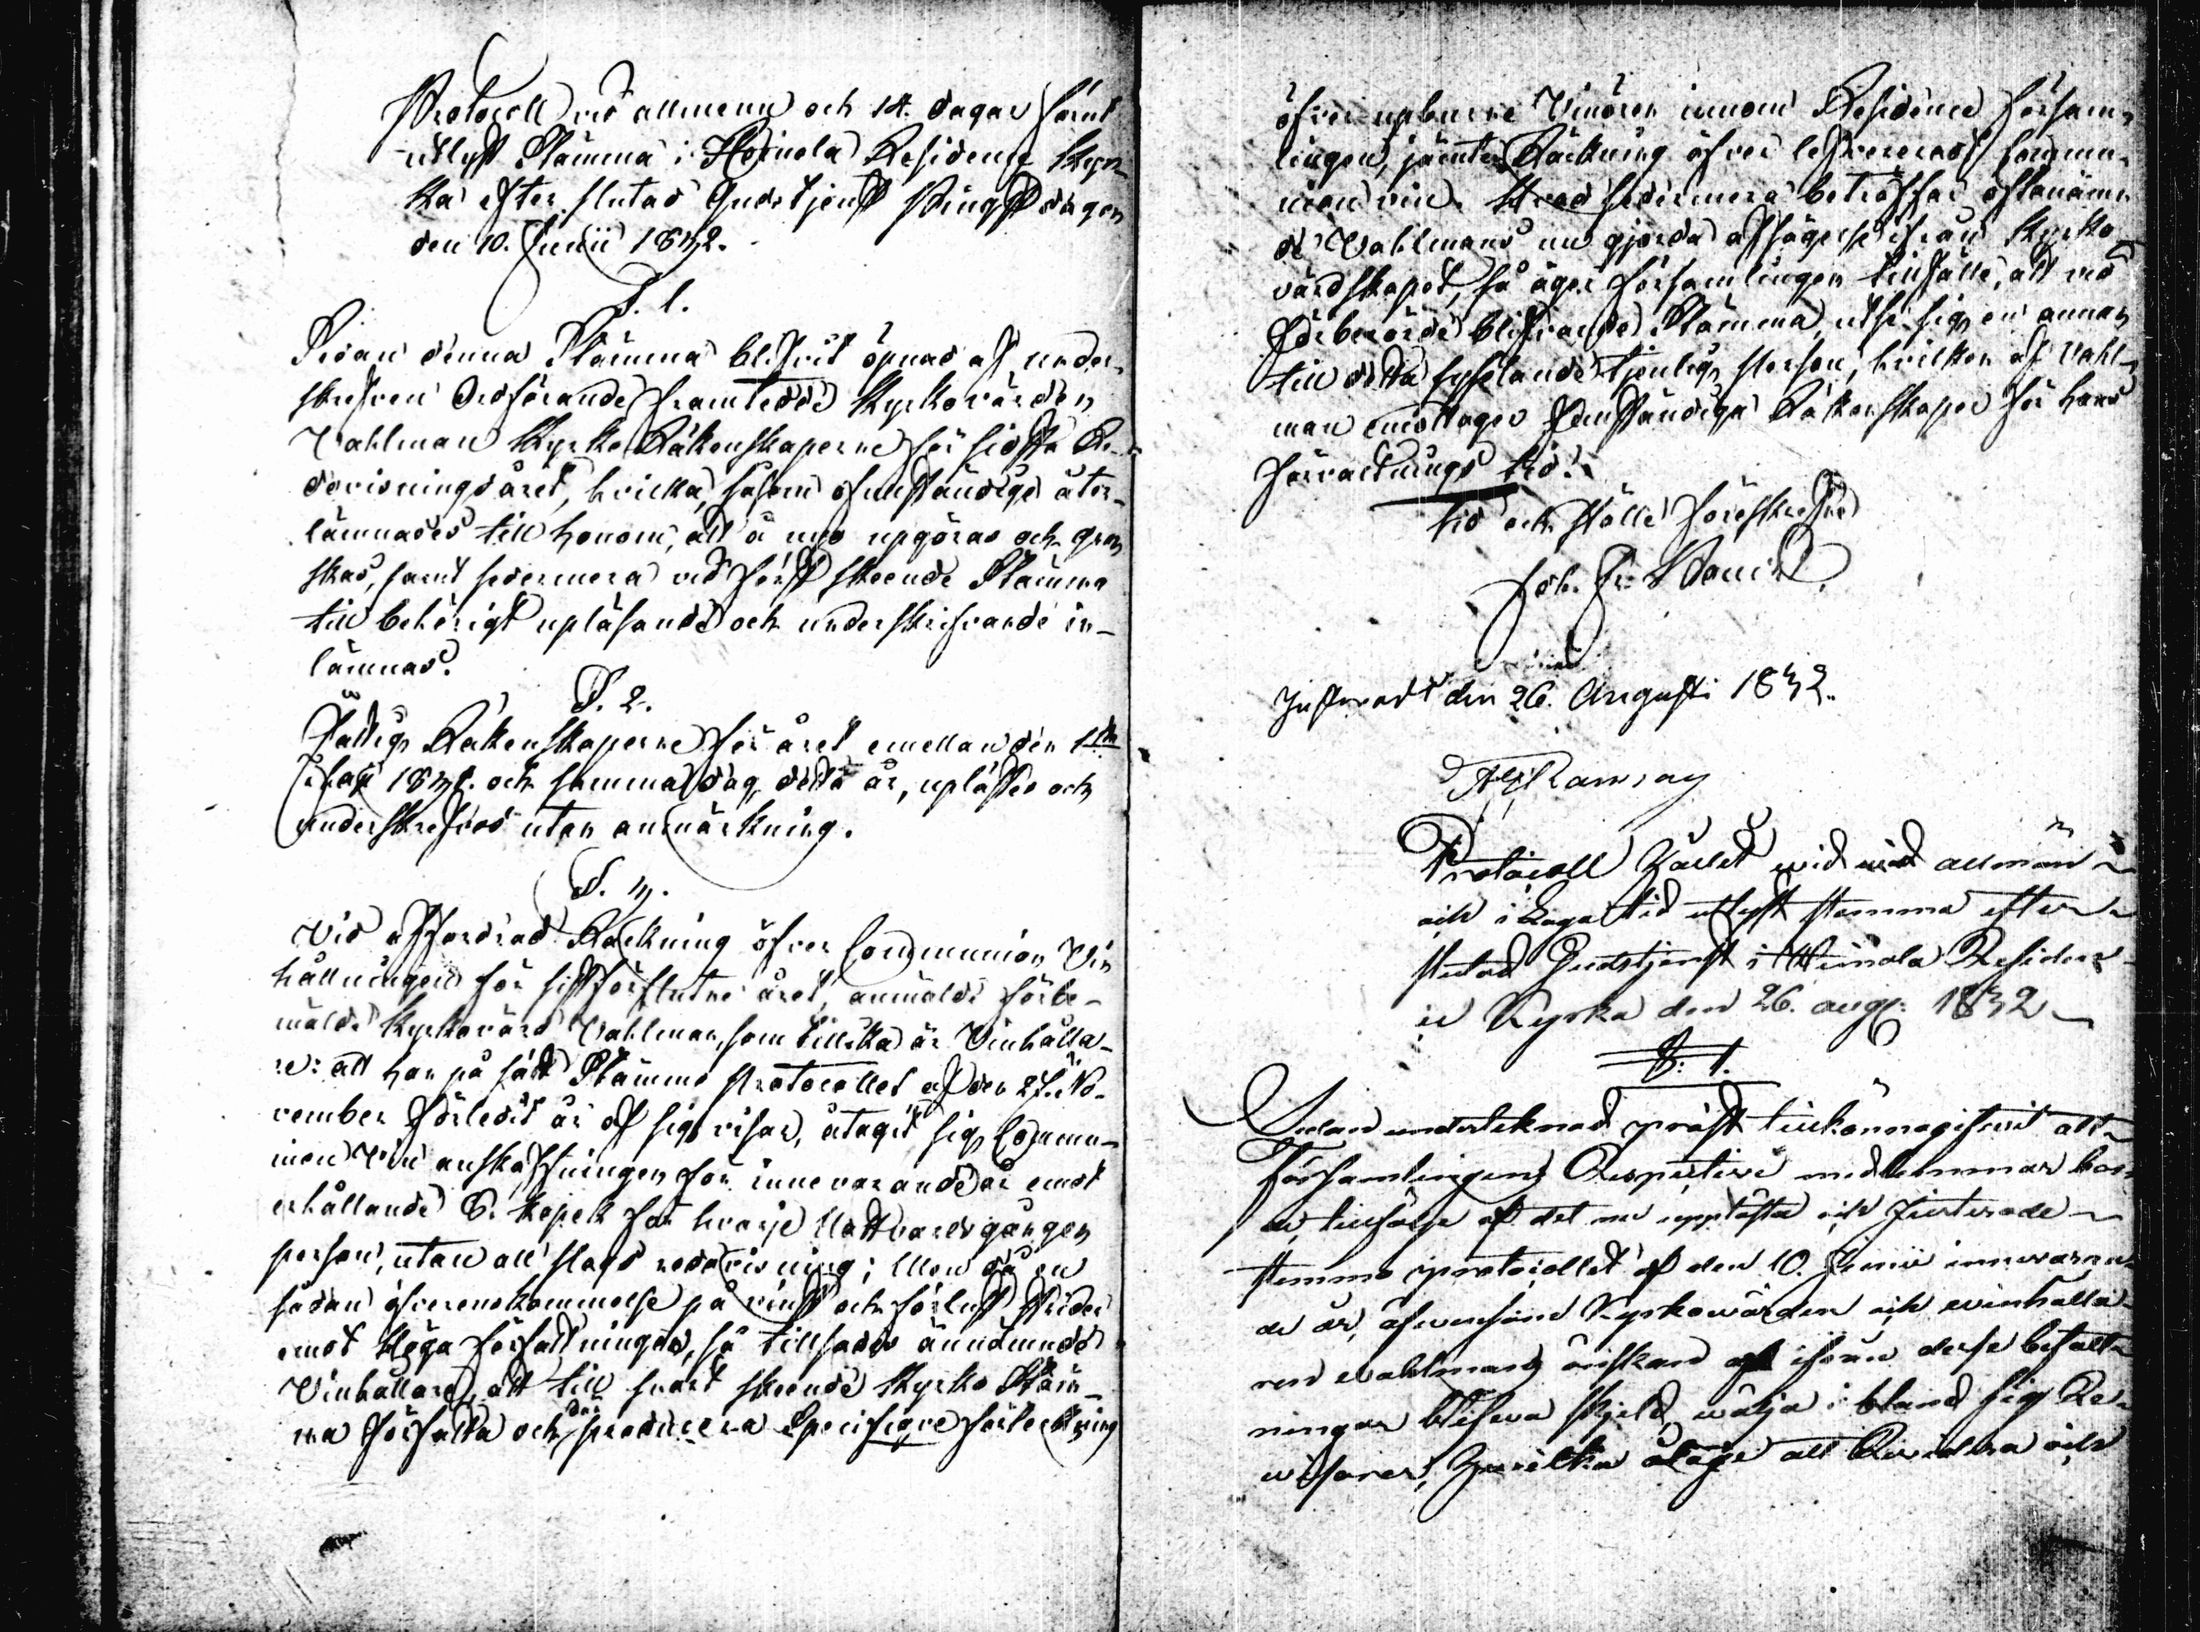 Protocoll vid allmenn och 14. dagar förut
utlyst Stämma i Heinola Residence Kyr-
ka efter slutad Gudstjenst Pingstdagen
den 10. Junii 1832.
§. 1.
Sedan denna Stämma blifvit öpnad af under-
skrefven Ordförande framtedde Kyrkovärden
Vahlman Kyrko Räkenskaperne för sidsta Re-
dovisningsåret, hvilka, såsom ofullständige åter-
lämnades till honom, att å nyo upgöras och gran-
skas, samt sedermera vid först skeende Stämma
till behörigt upläsande och underskrifvande in-
lämnas.
§. 2.
Fattigs Räkenskaperne för året emellan den 1sta
Maji 1831. och samma dag detta år, uplästes och
underskrefvos utan anmärkning.
§. 3.
Vid affordrad Räckning öfver Communion Vin
hållningen för sistförflutne året, anmälde förbe-
mälde Kyrkovärd Vahlman, som tillika är Vinhålla-
re: att han på sätt Stämmo Protocollet af den 27. No-
vember förledit år af sig visar, åtagit sig Commu-
nion Vin anskaffningen för innevarande år emot
erhållande 6. kopek för hvarje Nattvardsgången
person, utan all slags redovisning; Men då en
sådan öfverenskommelse på vinst och förlust strider
emot Höga författningar, så tillsades ännämnde
Vinhållare, att till snart skeende Kyrko Stäm-
ma författa och der producera Specifique förteckning
öfver upburne Vinören innom Residence försam-
lingen, jämte Räckning öfver lefvereradt Commu-
nion vin. Hvad sedermera beträffar oftanämn-
de Vahlmans nu gjorda afsägelse ifrån Kyrko-
värdskapet, så äger församlingen tillfälle, att vid
förberörde blifvande Stämma, utse sig en annan
till detta sysslande tjenlig Person, hvilken af Vahl-
man emottager fullständiga Räkenskaper för hans
förvaltnings tid.
tid och ställe föreskrefne
Joh. Fr.
Justeradt den 26. Augusti 1832.
Ramsay
Protocoll hållet wid allmän
och i laga tid utlyst stemma efter
slutad Gudstjenst i Heinola Residen-
ce Kyrka den 26. aug: 1832
§. 1.
Sedan undertecknad präst tillkännagifwit att
Församlingens Respective medlemmar bor-
de, tillfölje af det nu upplästa och Justerade
stemmo protocollet af den 10. Junii innewaran-
de år, äfwensom Kyrkowärden och winhålla-
ren Wahlmans önskan att ifrån desse befatt-
ningar blifwa skjeld wälja i bland sig Re-
visorer, hwilka ålåge att Revidera och